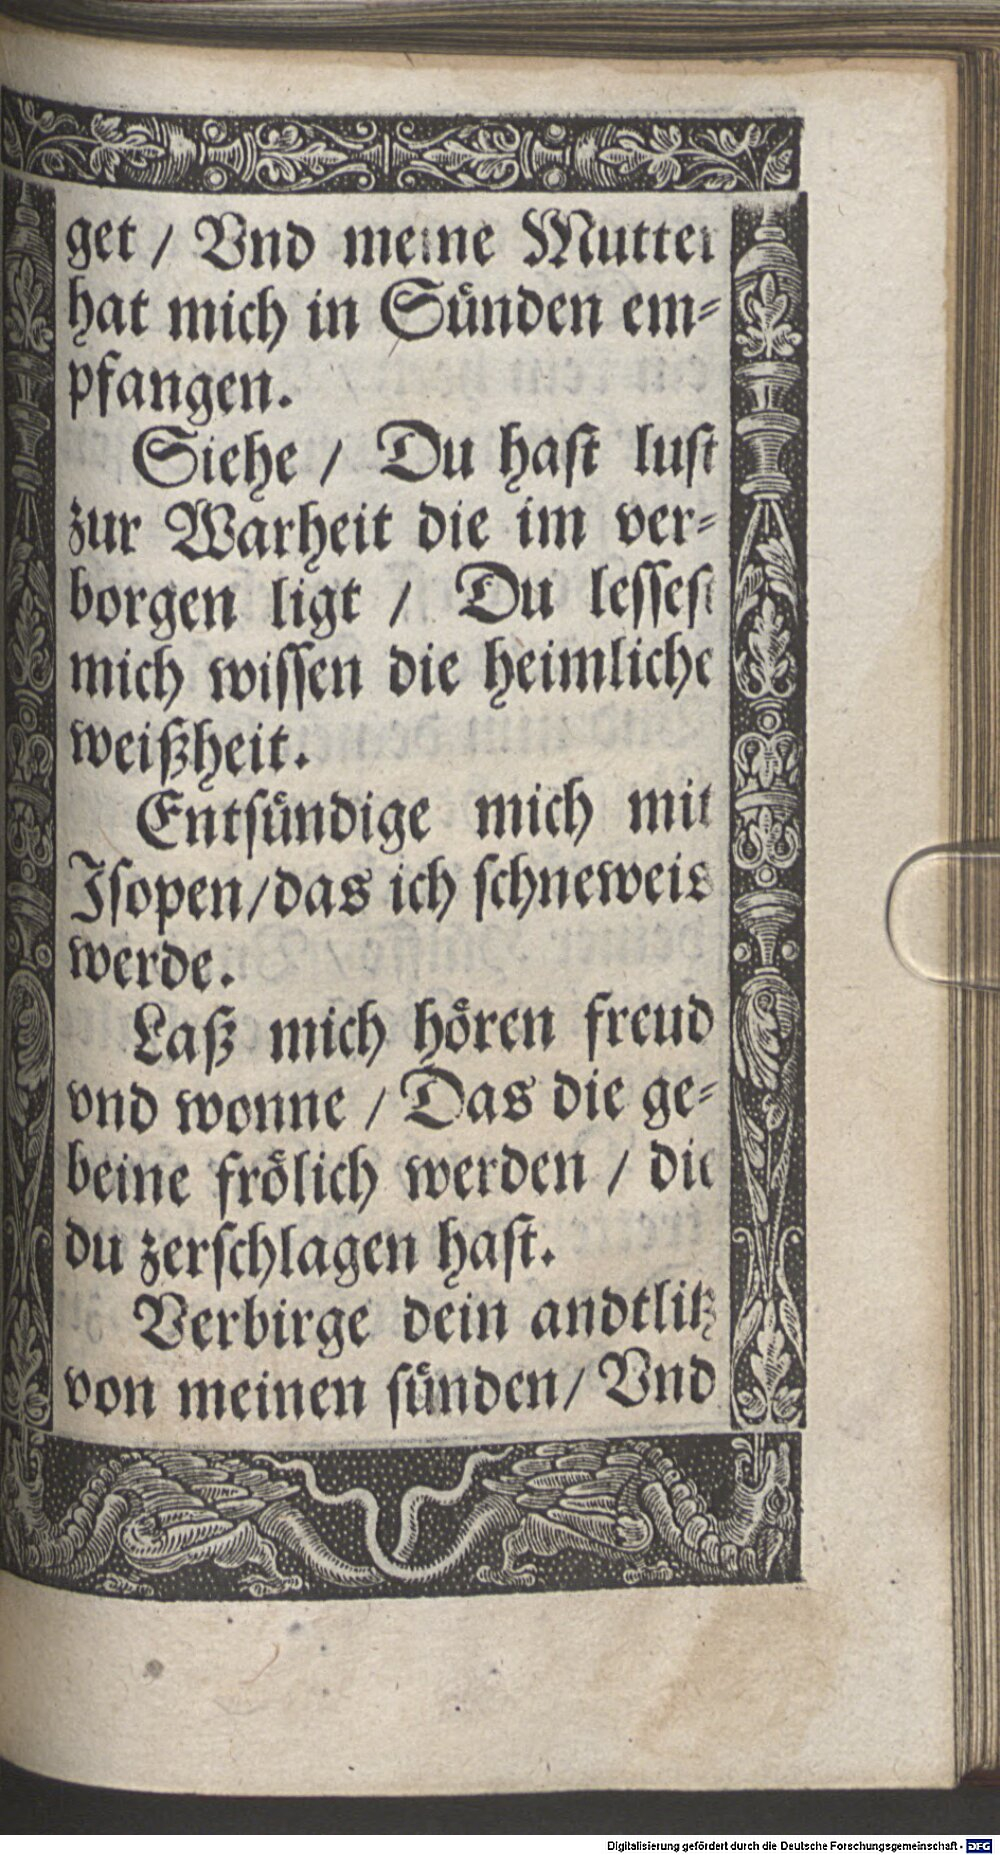 get / Vnd meine Mutter
hat mich in Sünden em⸗
pfangen.
Siehe / Du haſt luſt
zur Warheit die im ver⸗
borgen ligt / Du leſſeſt
mich wiſſen die heimliche
weißheit.
Entſündige mich mit
Iſopen/das ich ſchneweis
werde.
Laß mich hören freud
vnd wonne / Das die ge⸗
beine frölich werden / die
du zerſchlagen haſt.
Verbirge dein andtlitz
von meinen ſünden/ Vnd
Digitalisierung gefördert durch die Deutsche Forschungsgemeinschaft - DFG